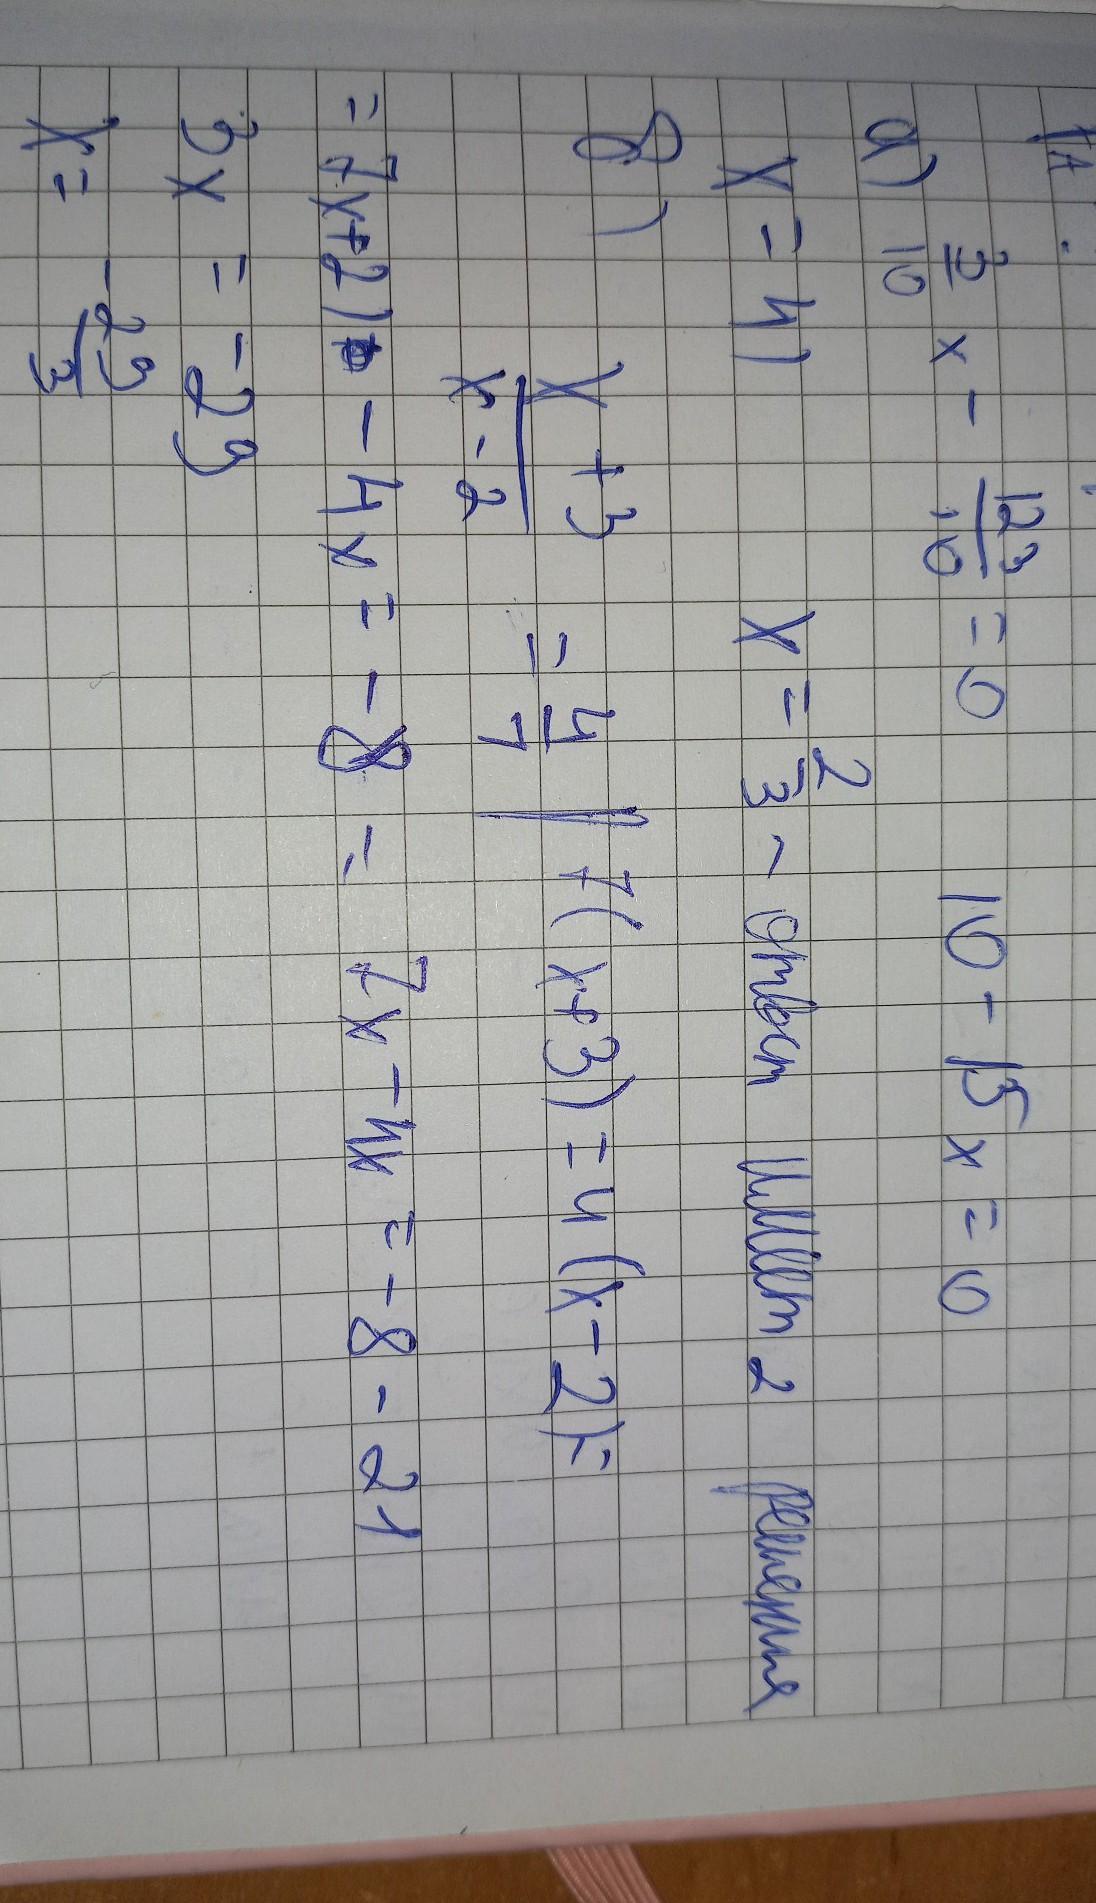 1А.
а) 3/10 x - 12/10 = 0 10 - 15x = 0
x = 4) x = 2/3 - ответ имеет 2 решения
б) x+3/x-2 = 4/7 | 7(x+3) = 4(x-2) =
= 7x+21 - 4x = -8 = 7x - 4x = -8 - 21
3x = -29
x = -29/3